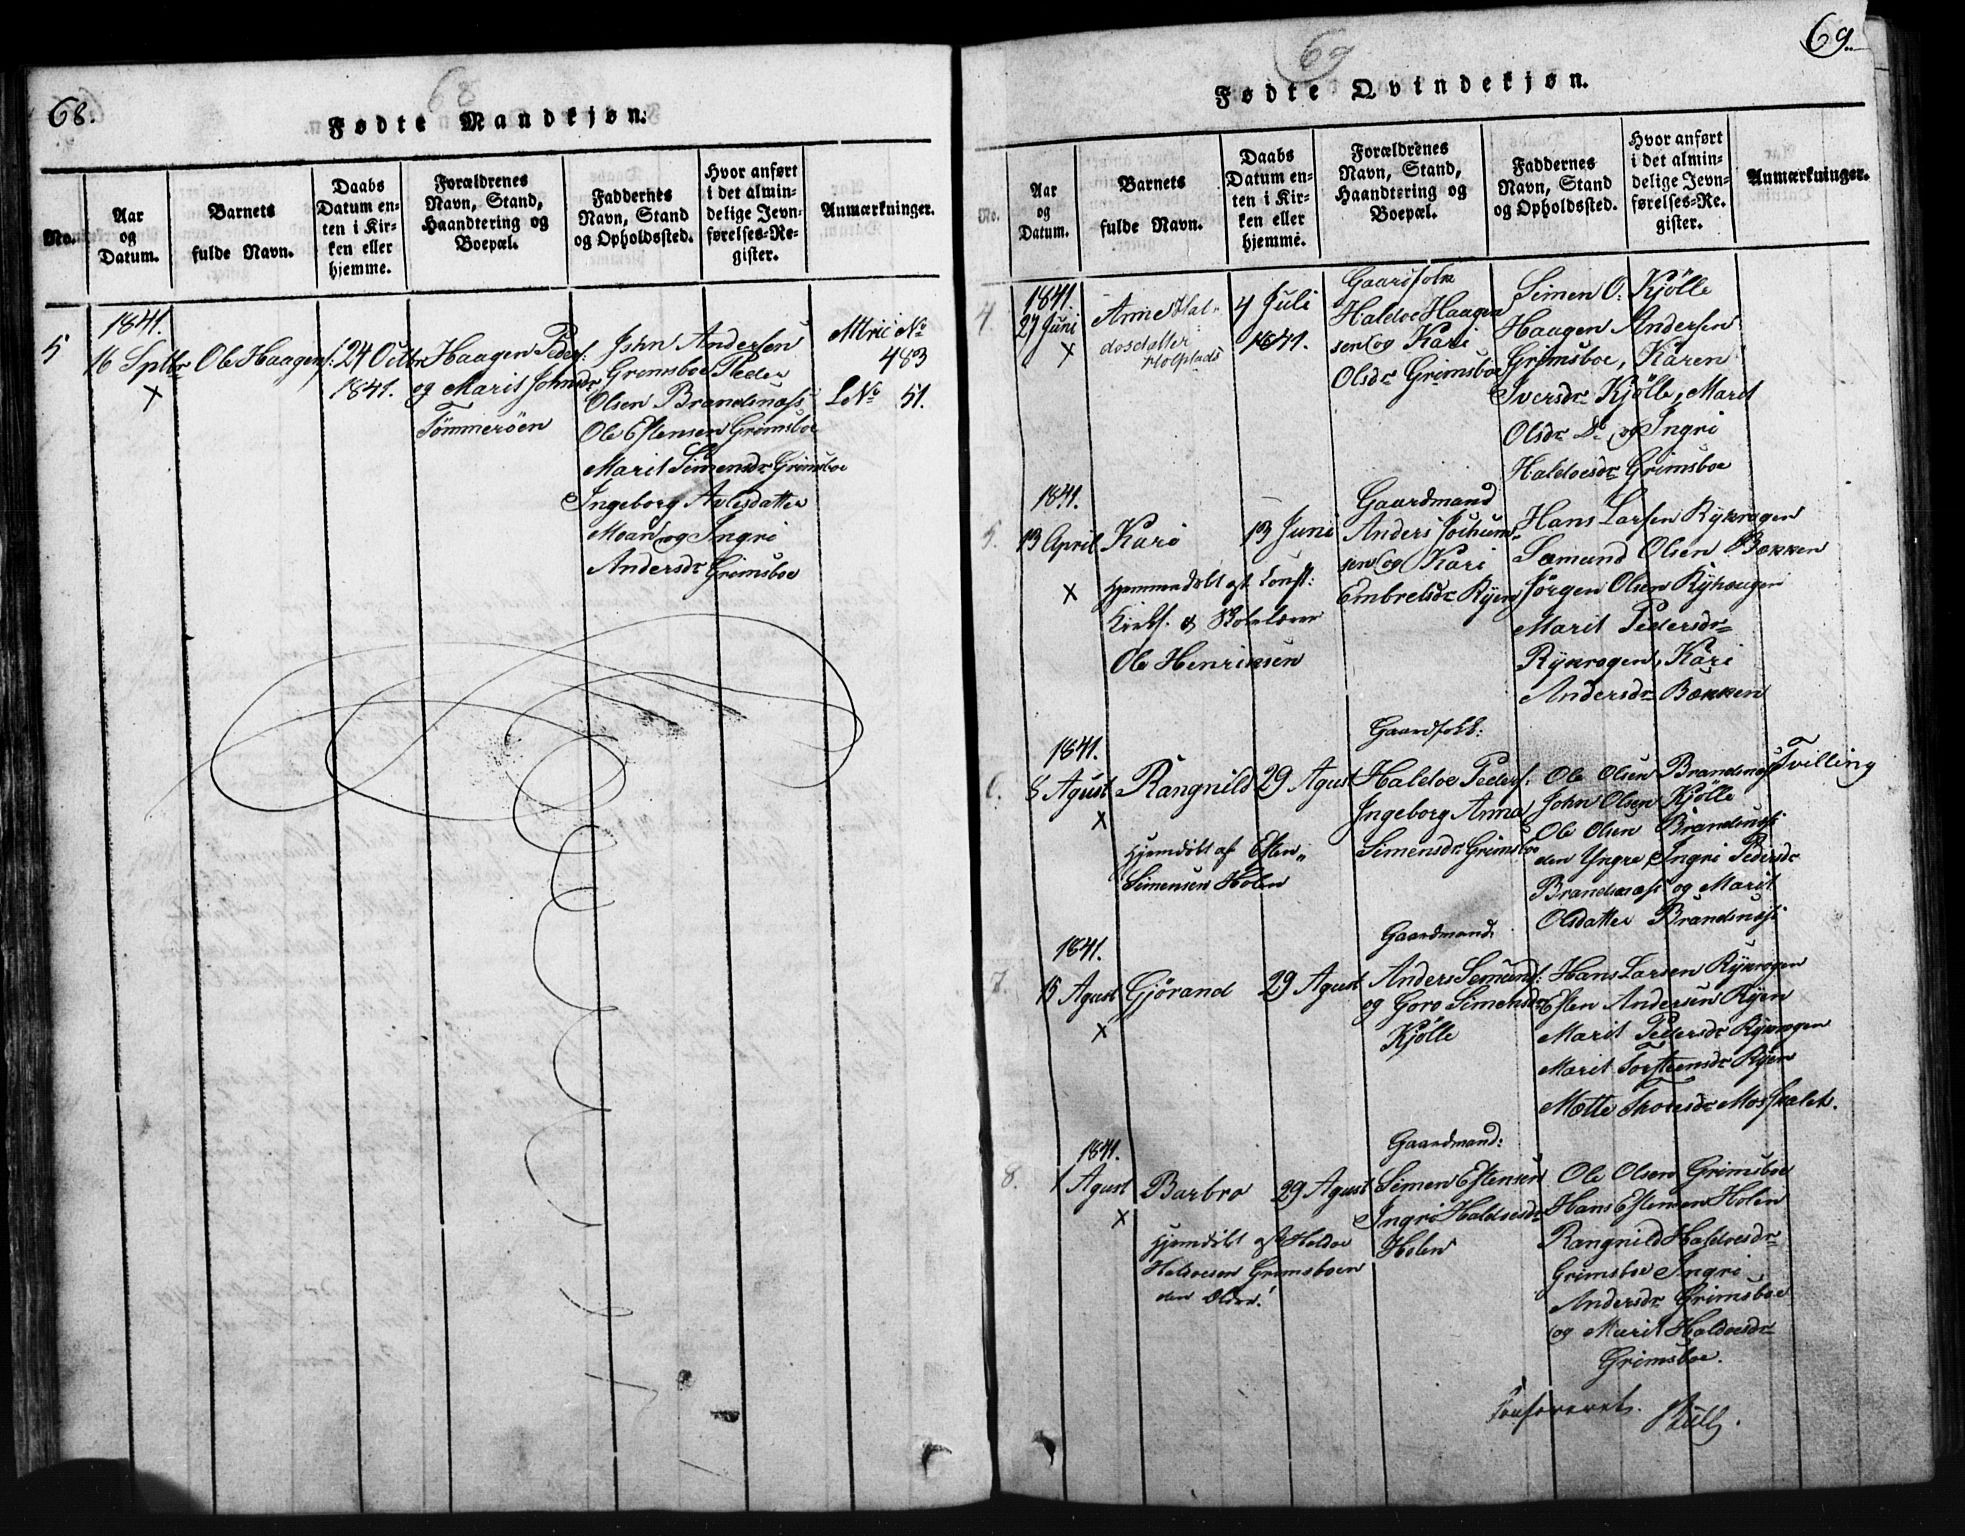 68.
68
Fødte Mandkjøn.
No.
Aar
og
Datum.
Barnets
fulde Navn.
Daabs
Datum en-
ten i Kir-
ken eller
hjemme.
Forældrenes
Navn, Stand,
Haandtering og
Boepæl.
Faddernes
Navn, Stand
og Opholdssted.
Hvor anført
i det almin-
delige Jevn-
førelses-Re-
gister.
Anmærkninger.
5
1841.
16 Sptbr
x
Ole Haagens:
24 Octbr
1841.
Haagen Peders:
og Marit Johnsdr
Tømmerøen
John Andersen
Grimsboe Peder
Olsen Brandsnæss
Ole Estensen Grimsboe
Marit Simensdr Grimsboe
Ingeborg Avlesdatter
Moan og Ingri
Andersdr Grimsboe
Mtric No
483
LNo 51.
69
69.
Fødte Qvindekjøn.
No.
Aar
og
Datum.
Barnets
fulde Navn.
Daabs
Datum en-
ten i Kir-
ken eller
hjemme.
Forældrenes
Navn, Stand,
Haandtering og
Boepæl.
Faddernes
Navn, Stand
og Opholdssted.
Hvor anført
i det almin-
delige Jevn-
førelses-Re-
gister.
Anmærkninger.
4.
1841.
27 Juni
x
Anne Hal-
dosdatter
4 Juli
1841.
Gaardfolk
Haldoe Haagen
sen og Kari
Olsdr Grimsboe
Simen O: Kjölle
Haagen Andersen
Grimsboe, Karen
Iversdr Kjölle, Marit
Olsdr Do og Ingri
Haldoesdr Grimsboe
5.
1841.
13 April
x
Kari
Hjemmedøbt af Const:
Kirks. & Skolelærer
Ole Henriksen
13 Juni
Gaardmand
Anders Jochum-
sen og Kari
Embretsdr Ryen
Hans Larsen Rykrogen
Semund Olsen Bækken
Jörgen Olsen Rykrogen
Marit Pedersdr
Rykrogen, Kari
Andersdr Bækken
6.
1841.
5 Agust
x
Rangnild
Hjemdöbt af Esten
Simensen Holen
29 Agust
Gaardfolk:
Haldoe Peders:
Ingeborg Anna
Simensdr Grimsboe
Ole Olsen Brandsnæss
John Olsen Kjölle
Ole Olsen Brandsnæss
den Yngre, Ingri Pedersdr
Brandsnæss og Marit
Olsdatter Brandsnæss
Tvilling
7.
1841.
15 Agust
x
Gjörand
29 Agust
Gaardmand
Anders Semunds:
og Goro Simensdr
Kjölle
Hans Larsen Rykrogen
Esten Andersen Ryen
Marit Pedersdr Rykrogen
Marit Torstensdr Ryen
Mette Thoresdr Mosskalet.
8.
1841.
1 Agust
x
Barbro
Hjemdöbt af Haldoe
Haldoesen Grimsboen
den Ældre!
29 Agust
Gaardmand:
Simen Estensen
Ingri Haldoesdr
Holen
Ole Olsen Grimsboe
Hans Estensen Holen
Rangnild Haldoesdr
Grimsboe Ingri
Andersdr Grimsboe
og Marit Haldoesdr
Grimsboe.
Confereret.